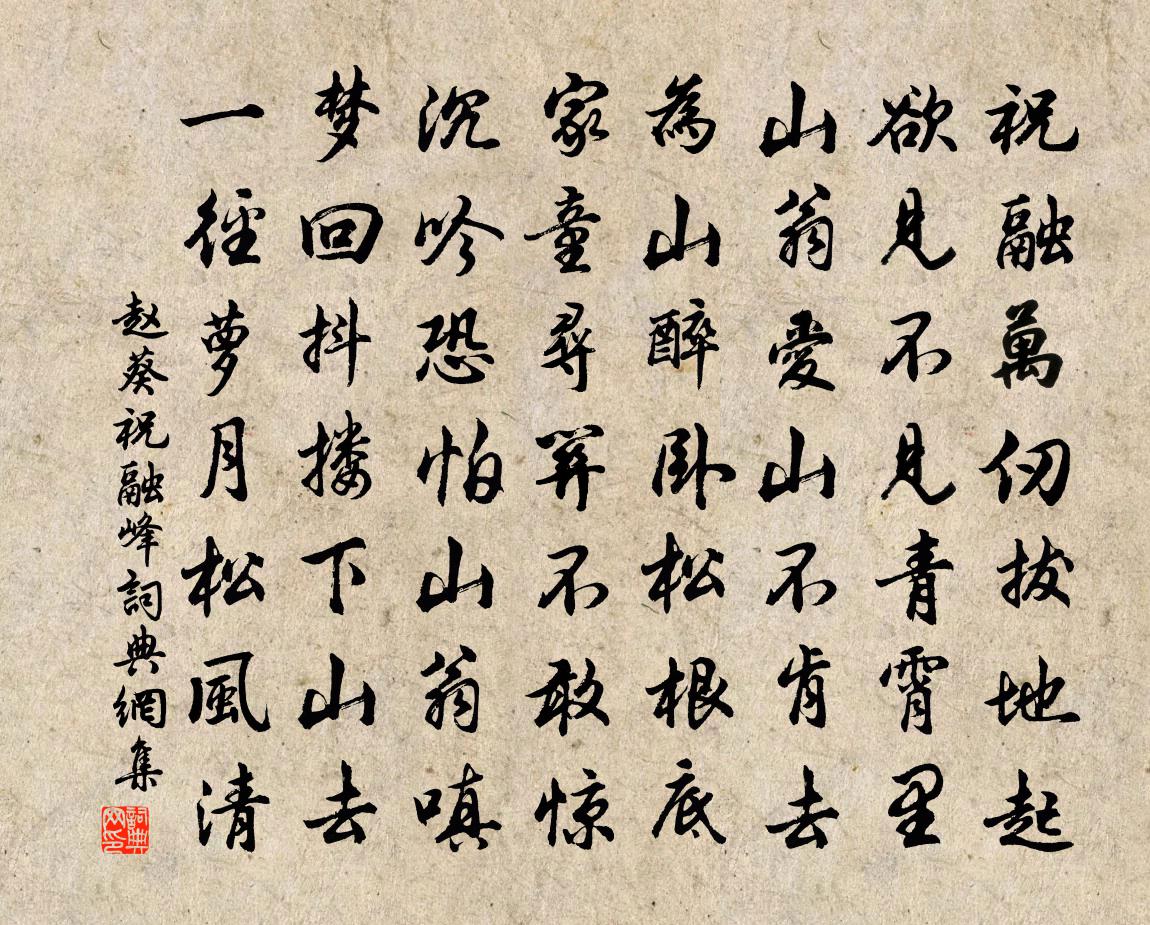 祝融萬仞拔地起
欲見不見青霄里
山翁愛山不肯去
為山醉卧松根底
家童尋覓不敢惊
沉吟恐怕山翁嗔
梦回抖搂下山去
一径萝月松風清
赵葵祝融峰詞典網集
詞典
网印